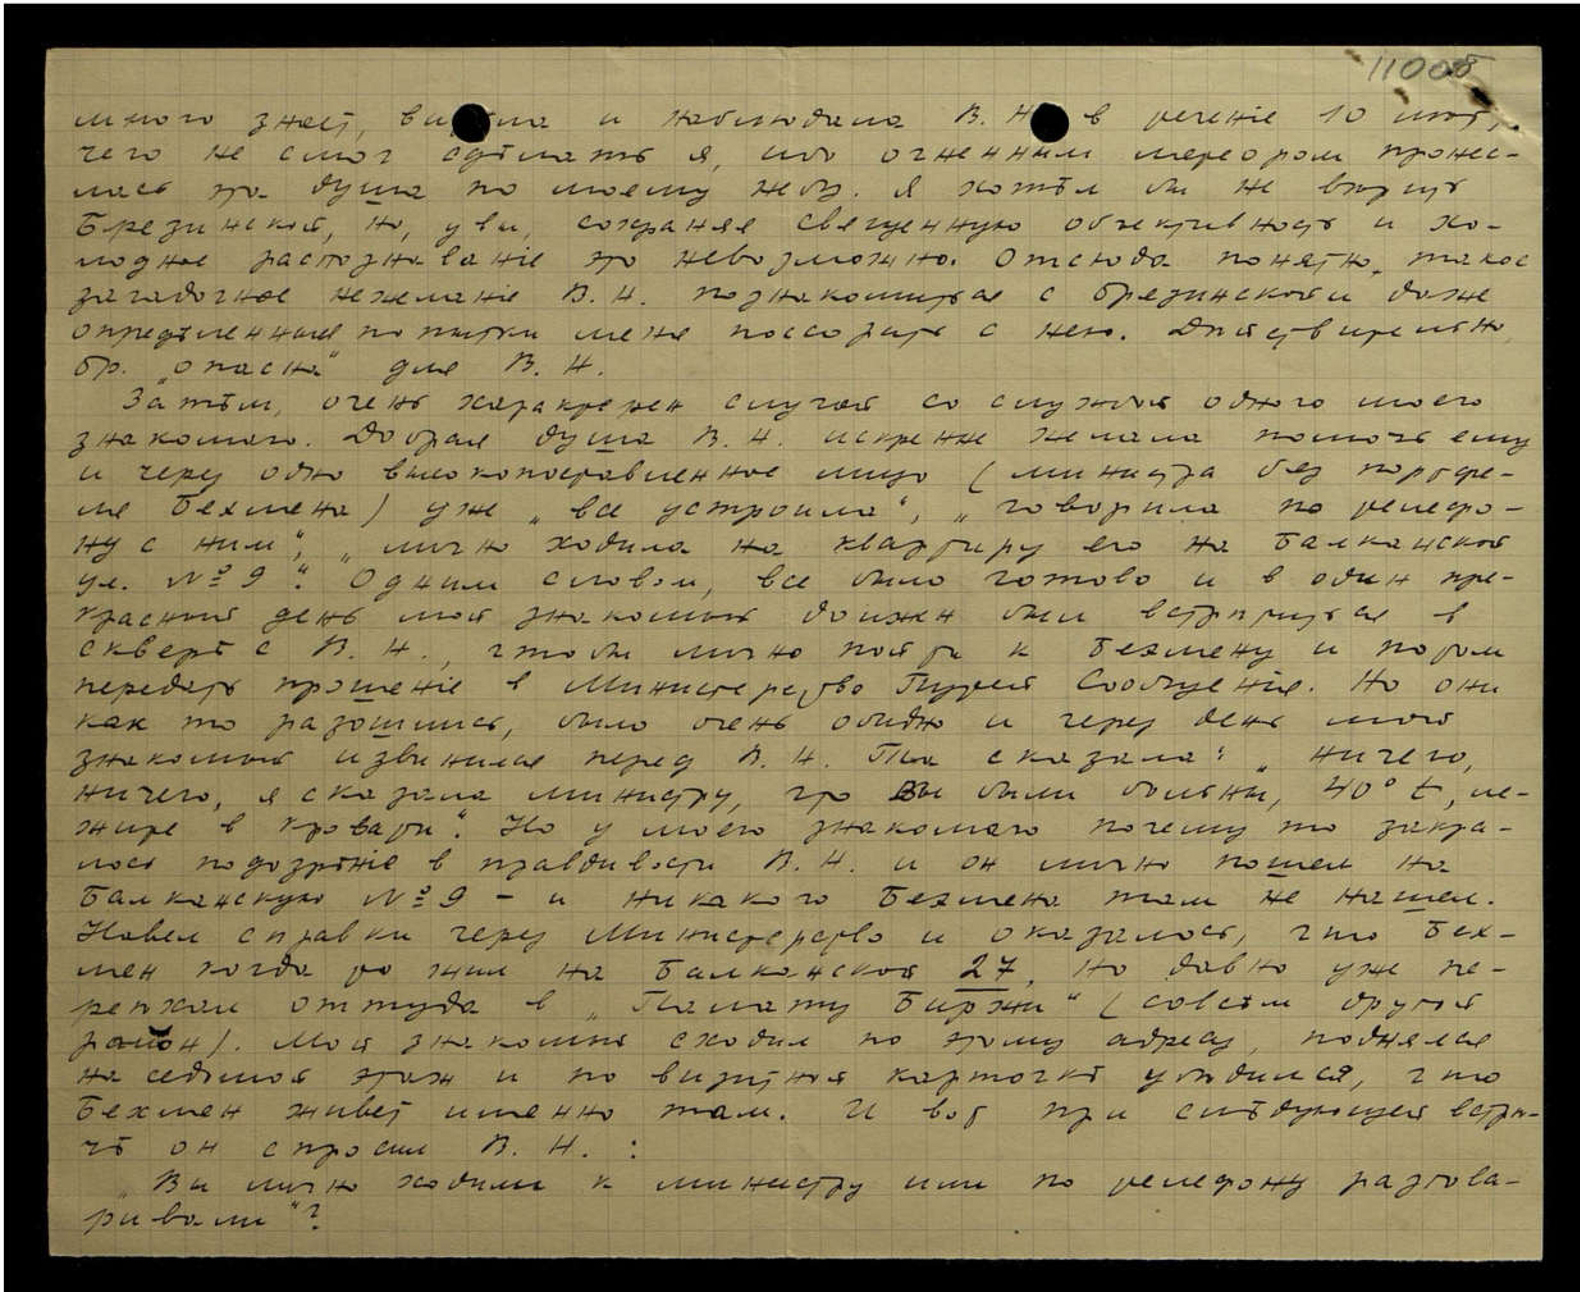 110об
много знает, видѣла и наблюдала В. Н. в теченіе 10 лет,
чего не смог сдѣлать я, ибо огненным метеором пронес-
лась эта душа по моему небу. Я хотѣл бы не вѣрить
Брезинской, но, увы, сохраняя священную объективность и хо-
лодное распознаваніе это невозможно. Отсюда понятно такое
загадочное нежеланіе В. Н. познакомиться с Брезинской и даже
опредѣленныя попытки меня поссорить с нею. Дѣйствительно,
бр. „опасна" для В. Н.
Затѣм, очень характерен случай со службой одного моего
знакомаго. Добрая душа В. Н. искренне желала помочь ему
и через одно высокопоставленное лицо (министра без портфе-
ля Бехмена) уже „все устроила", „говорила по телефо-
ну с ним", „лично ходила на квартиру его на Балканской
ул. № 9". Одним словом, все было готово и в один пре-
красный день мой знакомый должен был встрѣтиться в
скверѣ с В. Н., чтобы лично пойти к Бехмену и потом
передать прошеніе в Министерство Путей Сообщенія. Но они
как то разошлись, было очень обидно и через день мой
знакомый извинился перед В. Н. Та сказала: „Ничего,
ничего, я сказала министру, что Вы были больны, 40° t, ле-
жите в кровати". Но у моего знакомаго почему то закра-
лось подозрѣніе в правдивости В. Н. и он лично пошел на
Балканскую № 9 – и никакого Бехмена там не нашел.
Навел справки через Министерство и оказалось, что Бех-
мен когда то жил на Балканской 27, но давно уже пе-
реѣхал оттуда в „Палату Биржи" (совсѣм другой
район). Мой знакомый сходил по этому адресу, поднялся
на седьмой этаж и по визитной карточкѣ убѣдился, что
Бехмен живет именно там. И вот при слѣдующей встрѣ-
чѣ он спросил В. Н. :
„Вы лично ходили к министру или по телефону разгова-
ривали"?